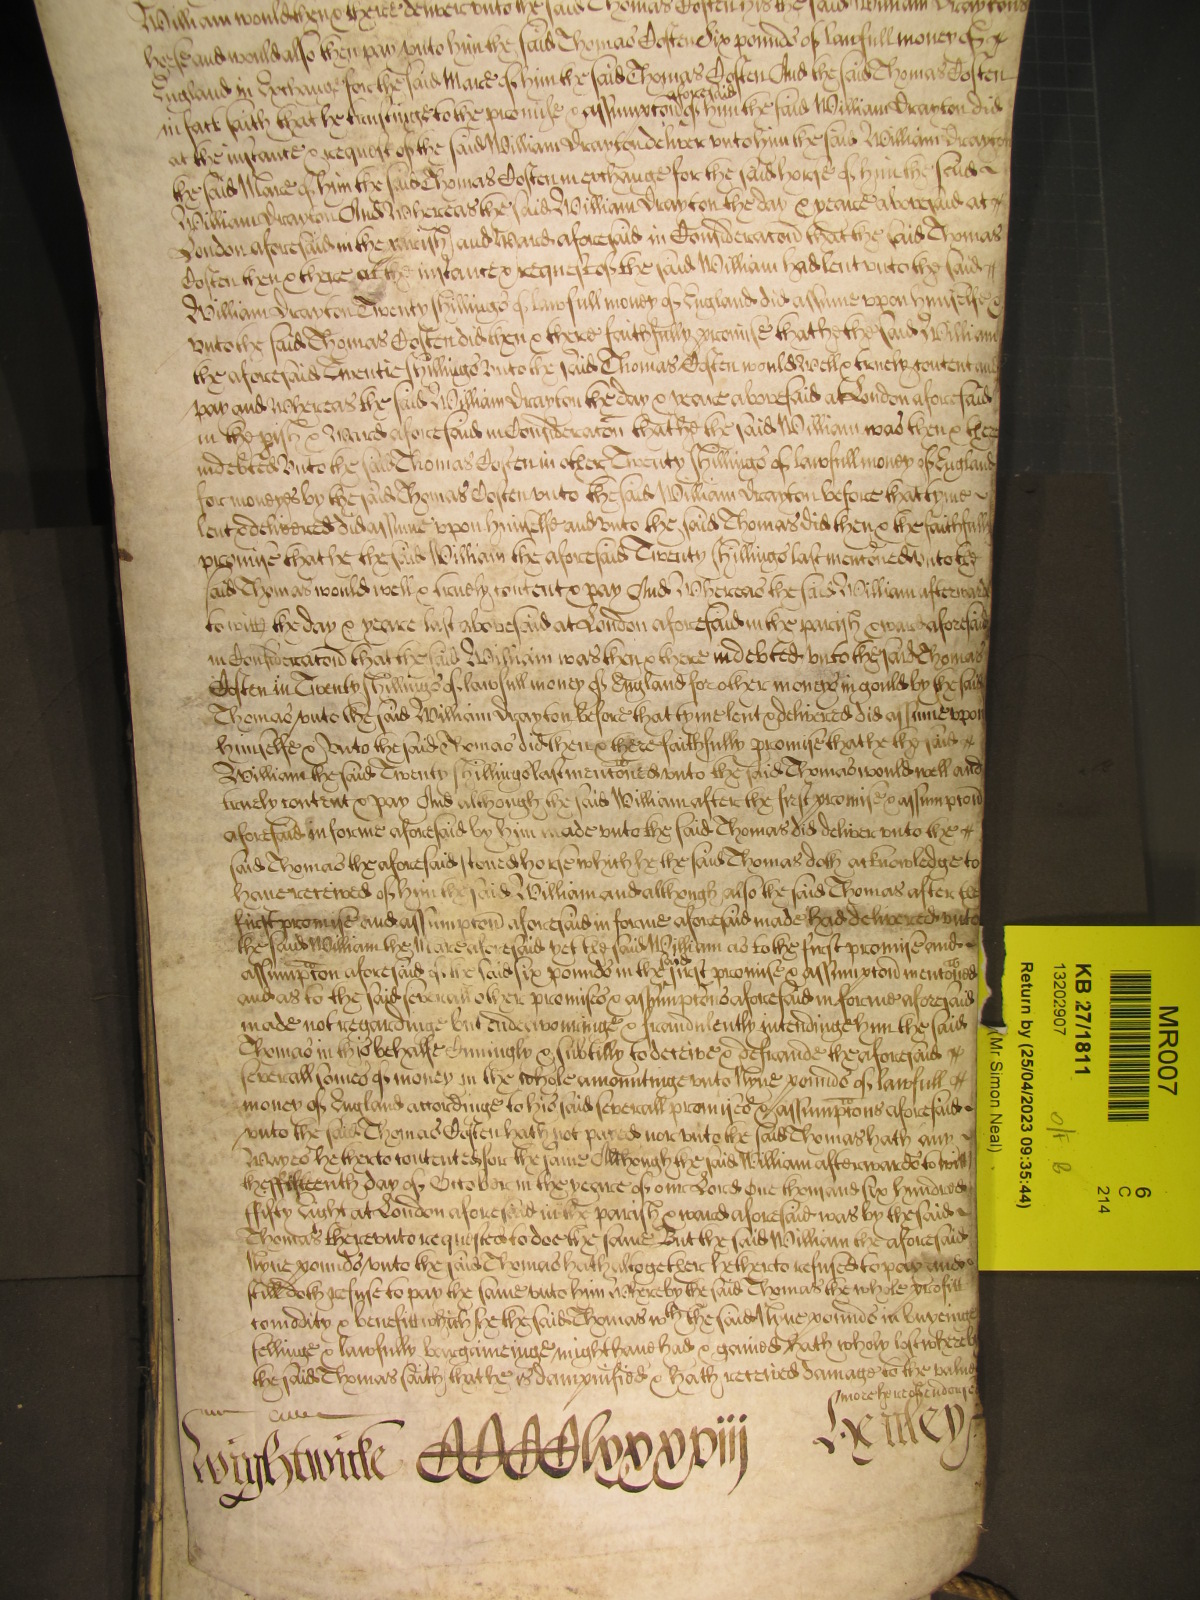 William would then & there deliver vnto the said Thomas Costen his the said William Draytons
horse and would also then pay vnto him the said Thomas Costen Six pounds of lawfull money of
England in Exchange for the said Mare of him the said Thomas Costen And the said Thomas Costen
in fact saith that he trustinge to the promise & assumpton aforesaid of him the said William Drayton did
at the instance & request of the said William Drayton deliver vnto him the said William Drayton
the said Mare of him the said Thomas Costen in exchange for the said horse of him the said
William Drayton And Whereas the said William Drayton the day & yeare abovesaid at
London aforesaid in the parish and Ward aforesaid in Consideracon that the said Thomas
Costen then & there at the instance & request of the said William had lent vnto the said
William Drayton Twenty shillings of lawfull money of England did assume vpon himselfe &
vnto the said Thomas Costen did then & there faithfully promise that he the said William
the aforesaid Twentie shillings vnto the said Thomas Costen would well & truely content and
pay and Whereas the said William Drayton the day & yeare abovesaid at London aforesaid
in the pish & Ward aforesaid in Consideracon that he the said William was then & there
indebted vnto the said Thomas Costen in other Twenty shillings of lawfull money of England
for moneys by the said Thomas Costen vnto the said William Drayton before that tyme
lent & delivered did assume vpon himselfe and vnto the said Thomas did then & the faithfully
promise that he the said William the aforesaid Twenty shillings last menconed vnto the
said Thomas would well & truely content & pay And Whereas the said William afterwards
to witt the day & yeare last abovesaid at London aforesaid in the parish & ward aforesaid
in Consideracon that the said William was then & there indebted vnto the said Thomas
Costen in Twenty shillings of lawfull money of England for other moneys in gould by the said
Thomas vnto the said William Drayton before that tyme lent & delivered did assume vpon
himselfe & vnto the said Thomas did then & there faithfully promise that he the said
William the said Twenty shillings last menconed vnto the said Thomas would well and
truely content & pay And although the said William after the first promise & assumpcon
aforesaid in forme aforesaid by him made vnto the said Thomas did deliver vnto the
said Thomas the aforesaid stoned horse which he the said Thomas doth acknowledge to
haue received of him the said William and although also the said Thomas after the
first promise and assumpcon aforesaid in forme aforesaid made had delivered vnto
the said William the Mare aforesaid yet the said William as to the first promise and
assumpcon aforesaid of the said six pounds in the said first promise & assumpcon menconed
and as to the said severall other promises & assumpcons aforesaid in forme aforesaid
made not regardinge but endeavouringe & fraudulently intendinge him the said
Thomas in this behalfe Cunningly & subtilly to deceive & defraude the aforesaid
severall somes of money in the whole amountinge vnto Nyne pounds of lawfull
money of England accordinge to his said severall promises & assumpcons aforesaid
vnto the said Thomas Costen hath not payed nor vnto the said Thomas hath any
Wayes hetherto contented for the same Although the said William afterwards to witt
the fifteenth day of October in the yeare of our Lord One thousand six hundred
fifty Eight at London aforesaid in the parish & ward aforesaid was by the said
Thomas therevnto requested to doe the same But the said William the aforesaid
Nyne pounds vnto the said Thomas hath altogether hetherto refused to pay and
still doth refuse to pay the same vnto him Whereby the said Thomas the whole profitt
comodity & benefitt which he the said Thomas wth the said Nyne pounds in buyeinge
sellinge & lawfully bargaineinge might haue had & gained hath wholy lost whereby
the said Thomas saith that he is dampnified & hath received damage to the value
more hereof endorsed
Wightwicke CCCClxxxviii Henley
MR007
6
C
214
KB 27/1811
13202907
Return by (25/04/2023 09:35:44)
(Mr Simon Neal)